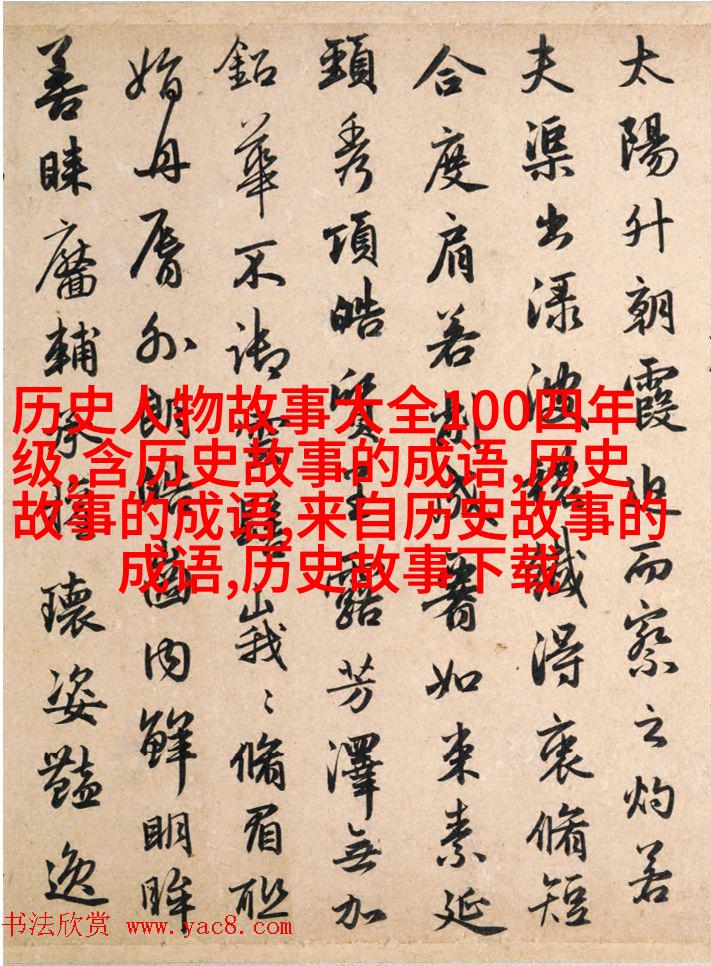 太陽升朝霞迫而察之灼若
夫渠出渌波穠纖得衷脩短
合度肩若削成如束素延
頸秀項皓質呈露芳澤無加
鉛華不御雲髻峩〻脩眉聯
娟丹脣外朗皓齒内鮮明眸
善睞靨輔承權瓌姿豔逸
历史人物故事大全100四年
级,含历史故事的成语,历史
故事的成语,来自历史故事的
成语,历史故事下载
书法欣赏 www.yac8.com